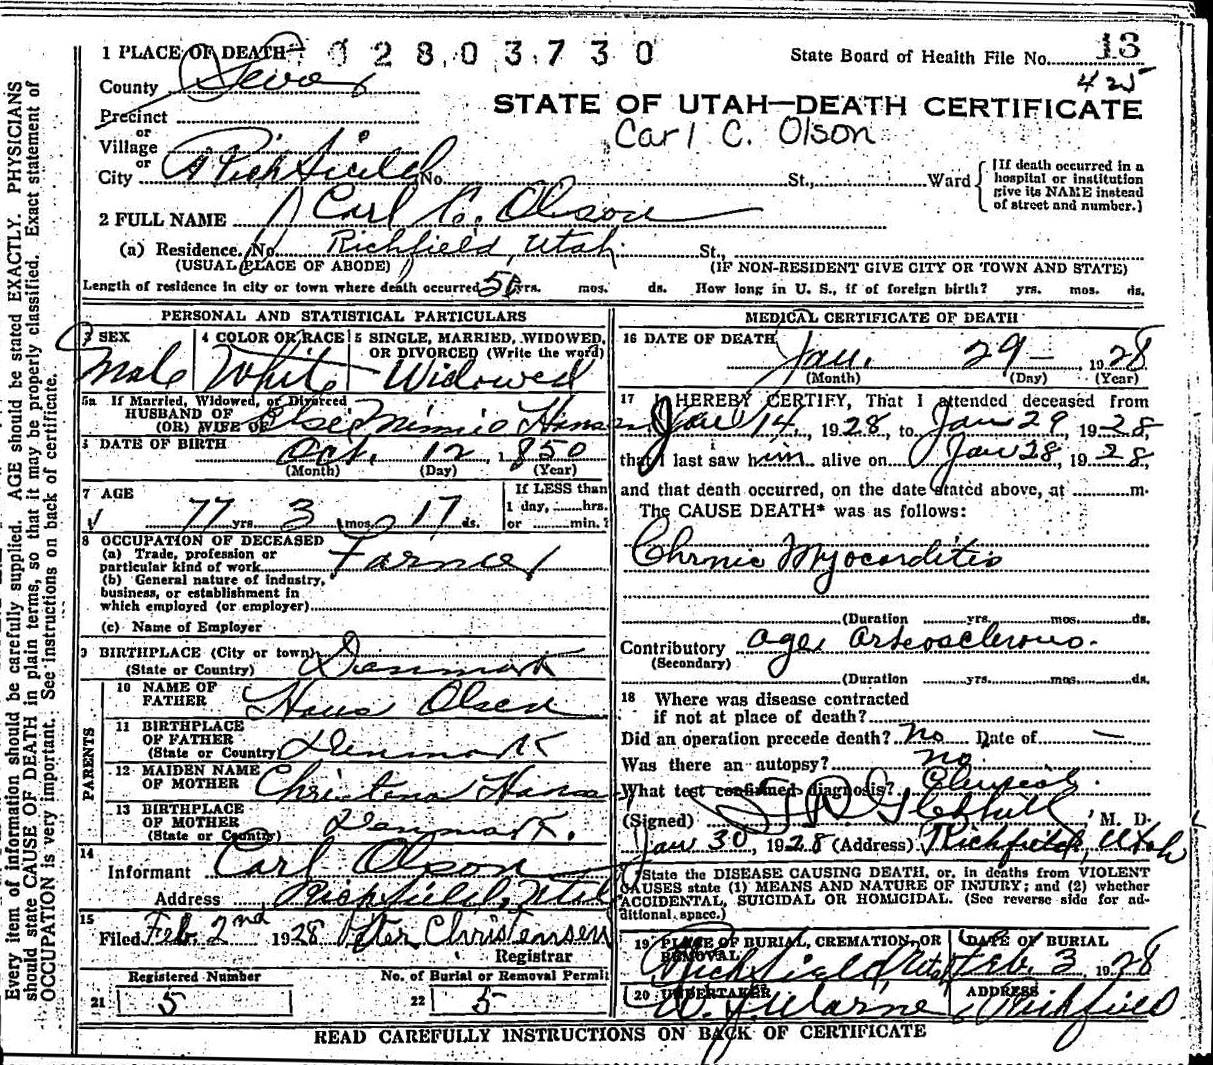 1 PLACE OF DEATH 0 2 8 0 3 7 3 0 State Board of Health File No. 13
County Sevier 425
STATE OF UTAH—DEATH CERTIFICATE
Precinct
or
Carl C. Olson
Village
or
City Richfield No. St., Ward
[If death occurred in a
hospital or institution
give its NAME instead
of street and number.]
2 FULL NAME Carl C. Olson
(a) Residence, No. Richfield, Utah. St.,
(USUAL PLACE OF ABODE) (IF NON-RESIDENT GIVE CITY OR TOWN AND STATE)
Length of residence in city or town where death occurred yrs. mos. ds. How long in U. S., if of foreign birth? yrs. mos. ds.
PERSONAL AND STATISTICAL PARTICULARS
3 SEX 4 COLOR OR RACE 5 SINGLE, MARRIED, WIDOWED,
OR DIVORCED (Write the word)
Male White Widowed
5a If Married, Widowed, or Divorced
HUSBAND OF
(OR) WIFE OF Else Minnie Hansen
DATE OF BIRTH Oct. 12, 1850
(Month) (Day) (Year)
7 AGE If LESS than
1 day, hrs.
77 yrs. 3 mos. 17 ds. or min.?
8 OCCUPATION OF DECEASED
(a) Trade, profession or
particular kind of work Farmer
(b) General nature of industry,
business, or establishment in
which employed (or employer)
(c) Name of Employer
9 BIRTHPLACE (City or town)
(State or Country) Denmark
PARENTS
10 NAME OF
FATHER Hans Olsen
11 BIRTHPLACE
OF FATHER
(State or Country) Denmark
12 MAIDEN NAME
OF MOTHER Christena Hans
13 BIRTHPLACE
OF MOTHER
(State or Country) Denmark.
14
Informant Carl Olson
Address Richfield, Utah
15
Filed Feb. 2nd 1928 Peter Christensen
Registrar
Registered Number No. of Burial or Removal Permit
21 5 22 5
MEDICAL CERTIFICATE OF DEATH
16 DATE OF DEATH
Jan. 29 — 1928
(Month) (Day) (Year)
17 I HEREBY CERTIFY, That I attended deceased from
Jan 14, 1928, to Jan 29 1928,
that I last saw him alive on Jan 28, 1928,
and that death occurred, on the date stated above, at m.
The CAUSE DEATH* was as follows:
Chrnic Myocarditis
(Duration yrs. mos. ds.
Contributory age arteosclerosis.
(Secondary)
(Duration yrs. mos. ds.
18 Where was disease contracted
if not at place of death?
Did an operation precede death? no Date of —
Was there an autopsy? no.
What test confirmed diagnosis? Clinical.
(Signed) M. D.
Jan 30, 1928 (Address) Richfield, Utah
State the DISEASE CAUSING DEATH, or, in deaths from VIOLENT
CAUSES state (1) MEANS AND NATURE OF INJURY; and (2) whether
ACCIDENTAL, SUICIDAL OR HOMICIDAL. (See reverse side for ad-
ditional space.)
19 PLACE OF BURIAL, CREMATION, OR DATE OF BURIAL
REMOVAL
Richfield, Utah Feb. 3 1928
20 UNDERTAKER ADDRESS
Richfield
READ CAREFULLY INSTRUCTIONS ON BACK OF CERTIFICATE
Every item of information should be carefully supplied. AGE should be stated EXACTLY. PHYSICIANS
should state CAUSE OF DEATH in plain terms, so that it may be properly classified. Exact statement of
OCCUPATION is very important. See instructions on back of certificate.